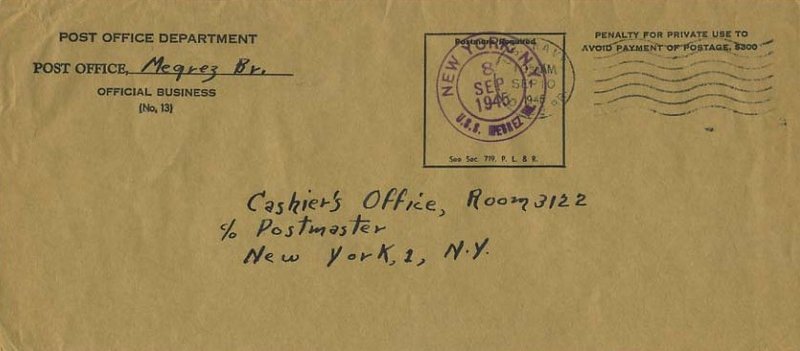 POST OFFICE DEPARTMENT
POST OFFICE, Megrez Br.
OFFICIAL BUSINESS
(No. 13)
Postmark Required
NEW YORK, N.Y.
8
SEP
1945
U.S.S. MEGREZ
AM
SEP 10
1945
See Sec. 719, P. L. & R.
PENALTY FOR PRIVATE USE TO
AVOID PAYMENT OF POSTAGE, $300
Cashier's Office, Room 3122
c/o Postmaster
New York, 1, N.Y.